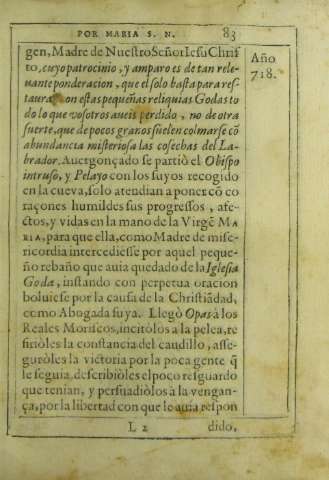 POR MARIA S. N. 83
gen, Madre de Nuestro Señor Iesu Chris
to, cuyo patrocinio, y amparo es de tan rele-
uante ponderacion, que el solo basta para res-
taurar con estas pequeñas reliquias Godas to
do lo que vosotros aueis perdido, no de otra
suerte, que de pocos granos suelen colmarse cō
abundancia misteriosa las cosechas del La-
brador. Auergonçado se partiò el Obispo
intruso, y Pelayo con los suyos recogido
en la cueva, solo atendian a poner cō co
raçones humildes sus progressos, afe-
ctos, y vidas en la mano de la Virgē MA
RIA, para que ella, como Madre de mise-
ricordia intercediesse por aquel peque-
ño rebaño que auia quedado de la Iglesia
Goda, instando con perpetua oracion
boluiesse por la causa de la Christiādad,
como Abogada suya. Llegò Opas à los
Reales Moriscos, incitòlos a la pelea, re
firiòles la constancia del caudillo, asse-
guròles la victoria por la poca gente q̄
le seguia, describiòles el poco resguardo
que tenian, y persuadiòlos à la vengan-
ça, por la libertad con que le auia respon
L 2 dido,
Año
718.